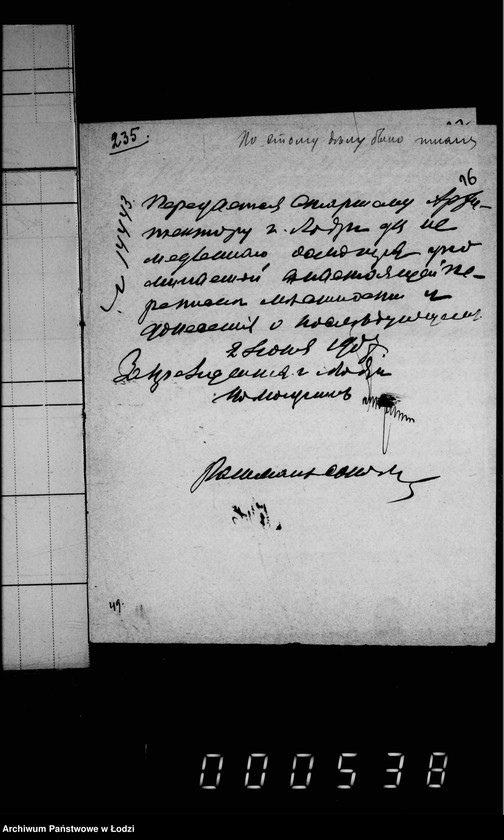 235.
По этому дѣлу было писано
96
N 14443
Передается Старшему Архи-
тектору г. Лодзи для не
медленнаго осмотра упо
минаемой въ настоящей пе-
репискѣ мѣстности и
донесенія о послѣдующемъ
2 Іюня 1907
За Президента г. Лодзи
Помощникъ
49.
000538
Archiwum Państwowe w Łodzi